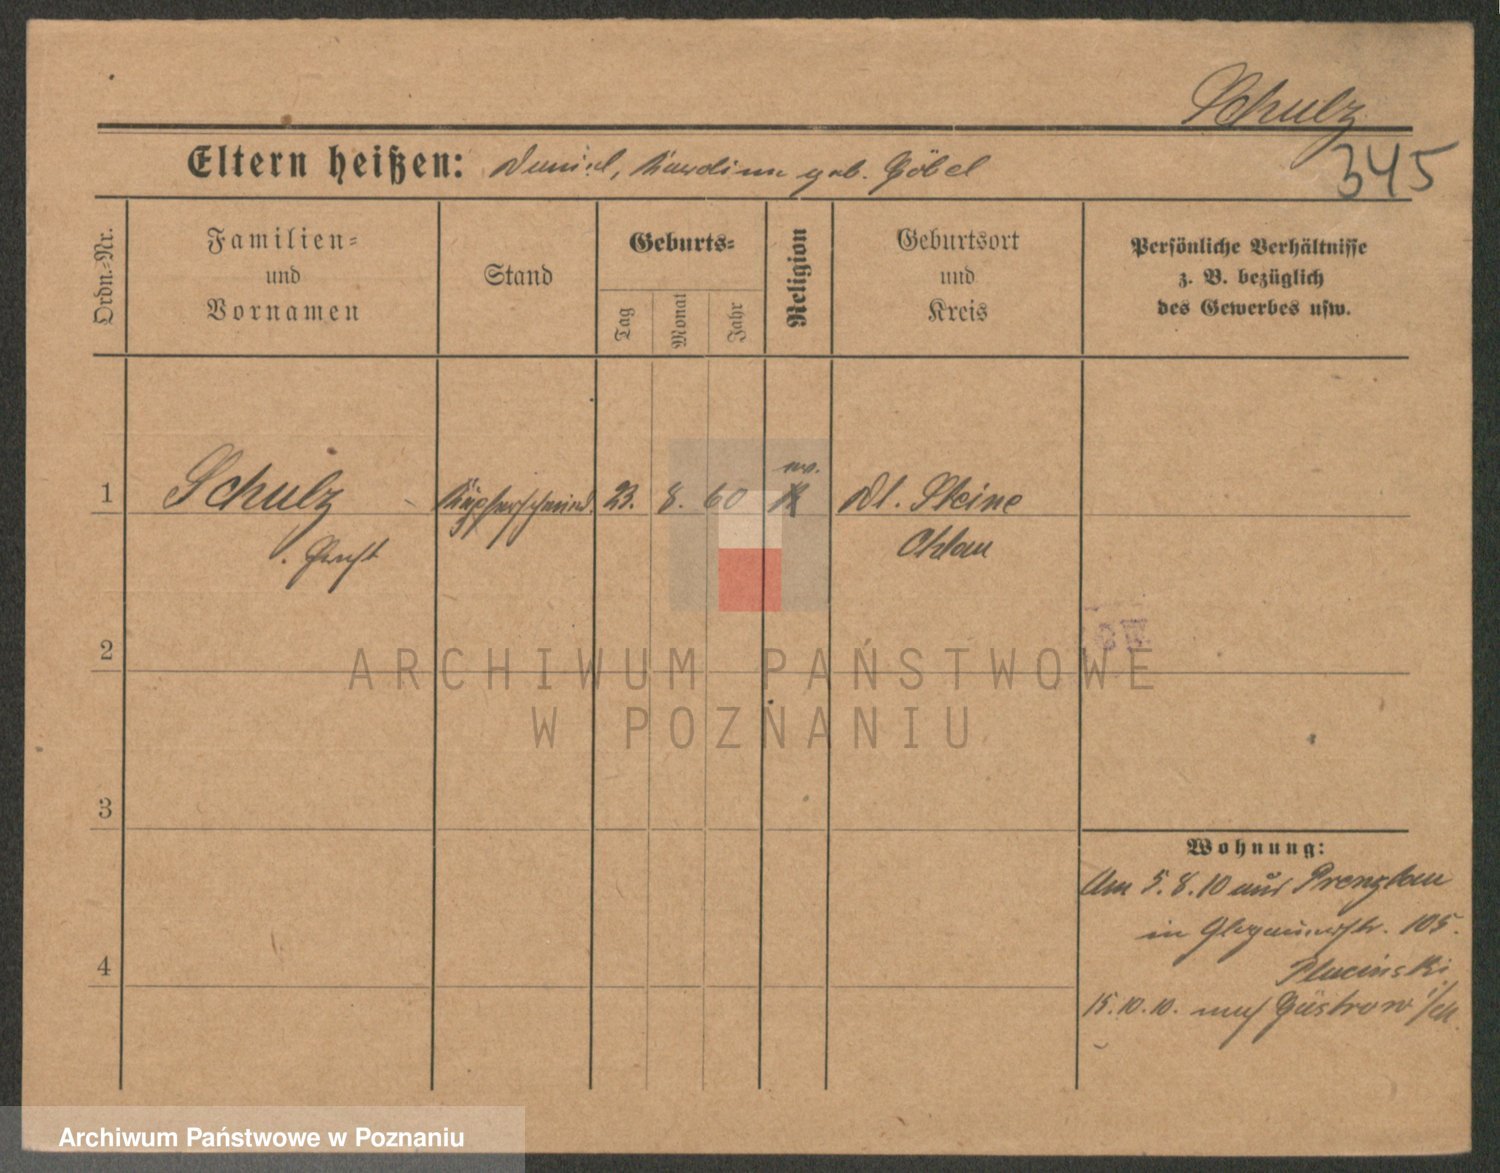 Schulz
345
Eltern heißen: Daniel, geb. Göbel
Ordn.-Nr.
Familien-
und
Vornamen
Stand
Geburts-
Tag
Monat
Jahr
Religion
Geburtsort
und
Kreis
Persönliche Verhältnisse
z. B. bezüglich
des Gewerbes usw.
1 Schulz Kupferschmied. 23. 8. 60 ev. Dt. Steine
Ernst Ohlau
2
3
4
Wohnung:
Am 5.8.10 aus Prenzlau
in 105.
Plucinski
15.10.10. nach Güstrow
ARCHIWUM PAŃSTWOWE
W POZNANIU
Archiwum Państwowe w Poznaniu